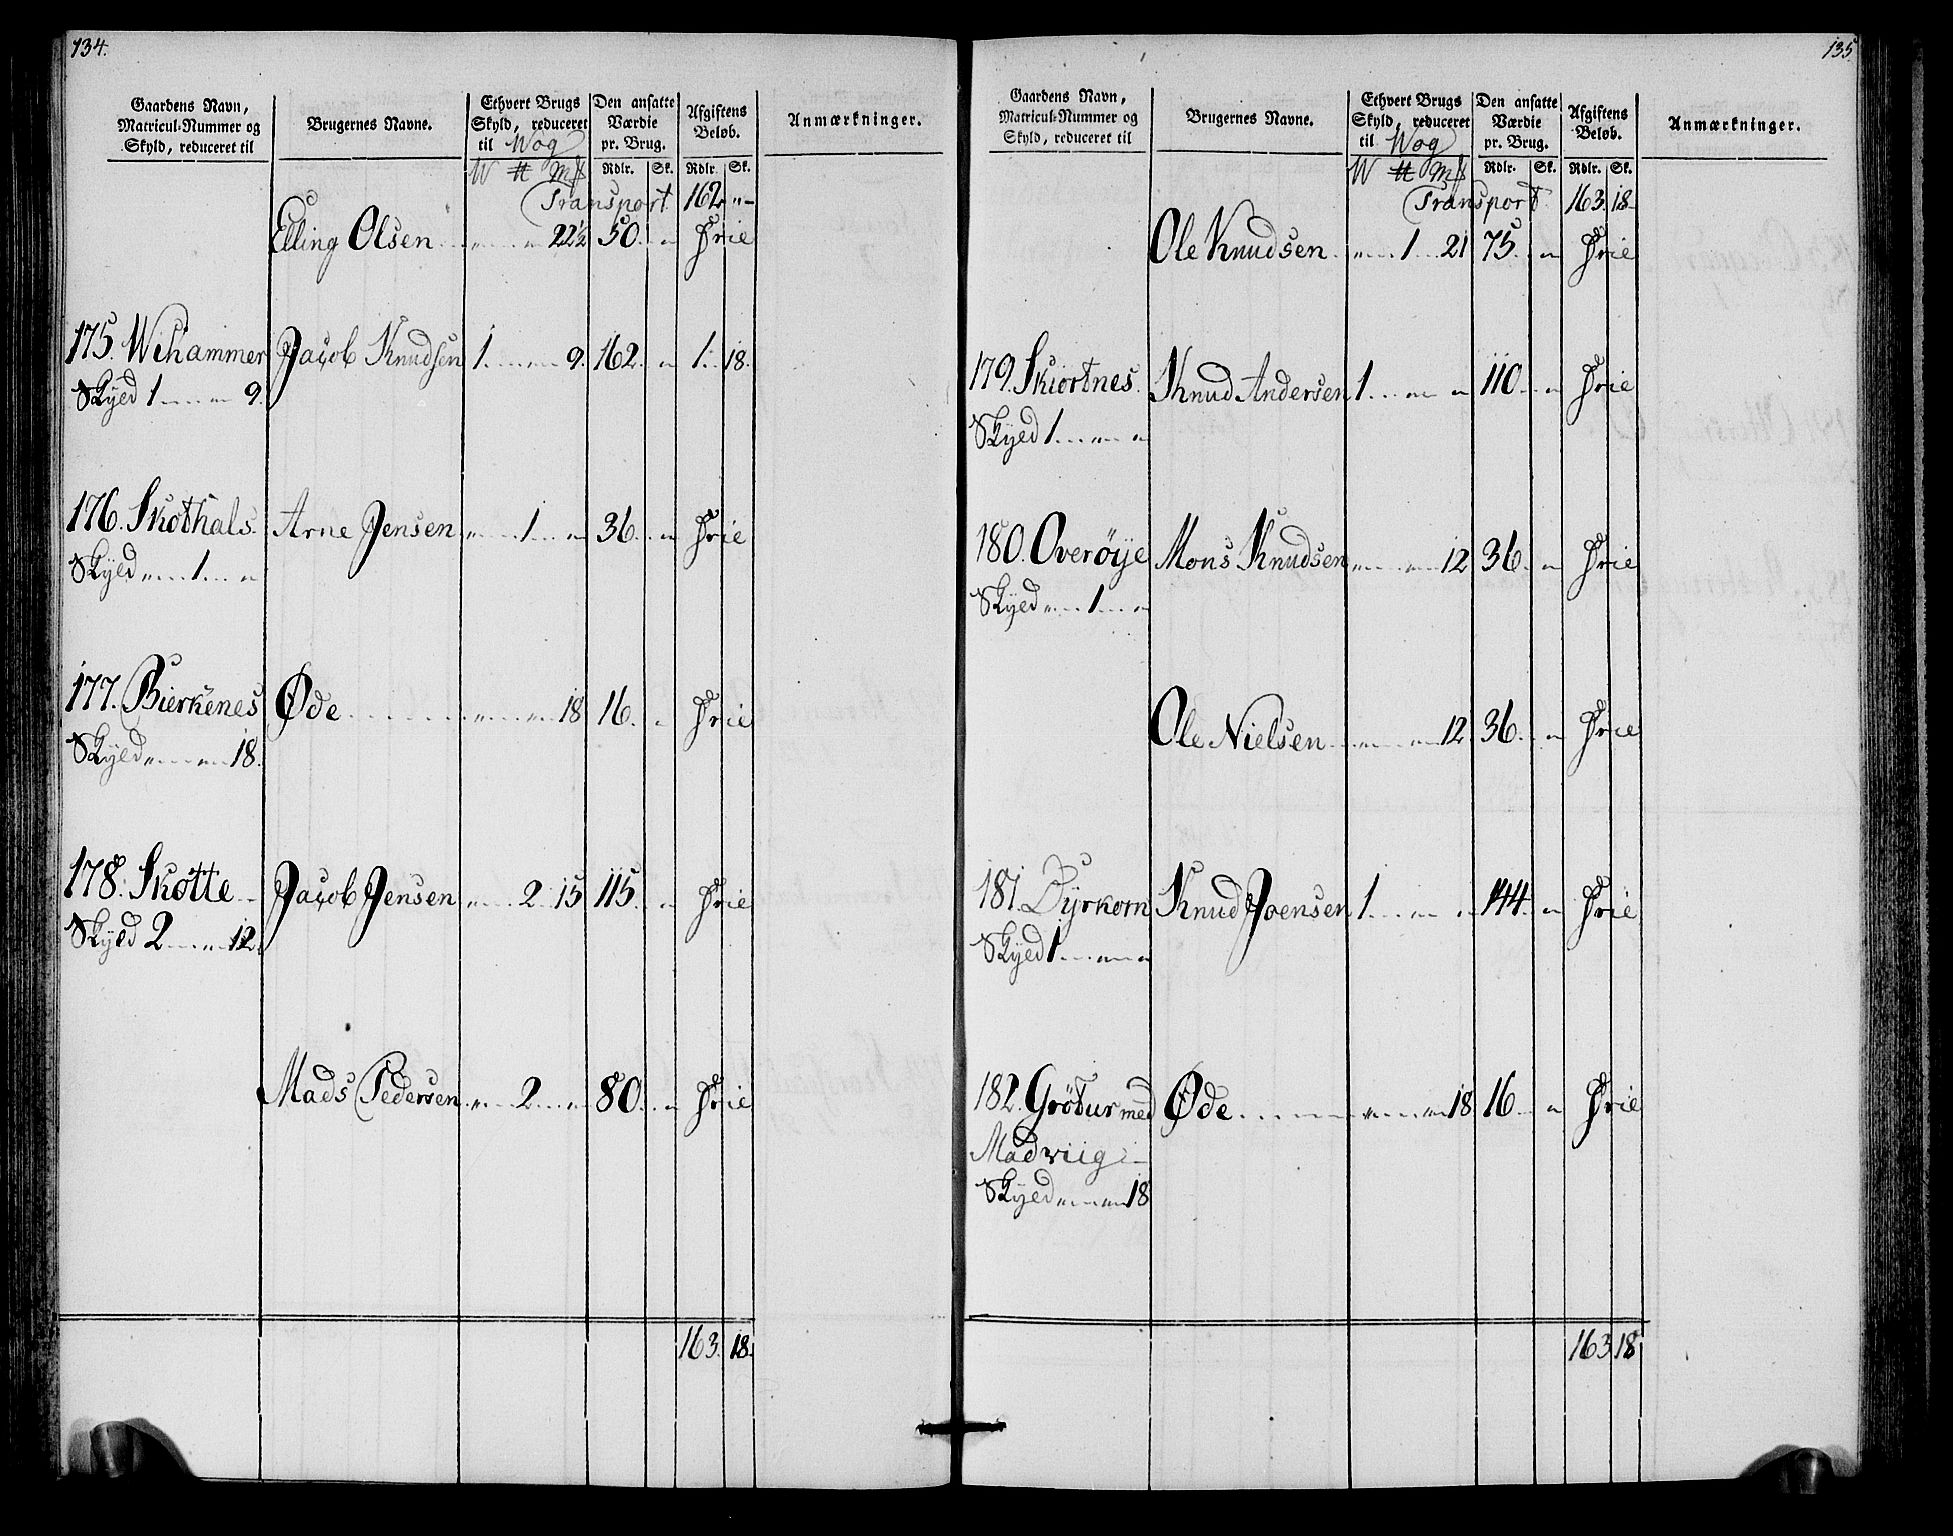 134.
Gaardens Navn, Matricul-Nummer og Skyld, reduceret til
Brugernes Navne.
Ethvert Brugs Skyld, reduceret til Wog
Den ansatte Værdie pr. Brug.
Afgiftens Beløb.
Anmærkninger.
W ℔ M Rdlr. Sk. Rdlr. Sk.
Transport 162 "
Elling Olsen " " 22½ 50 " Frie
175. Wihammer Jacob Knudsen 1 " 9. 162. " 1. 18.
Skyed 1 " 9.
176. Skothals Arne Jensen " 1 " 36. " Frie
Skyed " 1 "
177. Bierkenes Øde " " 18 16. " Frie
Skyed " " 18.
178. Skotte Jacob Jensen " 2 15 115. " Frie
Skyed 2 " 12.
Mads Pedersen " 2 " 80. " Frie
163. 18.
135.
Gaardens Navn, Matricul-Nummer og Skyld, reduceret til
Brugernes Navne.
Ethvert Brugs Skyld, reduceret til Wog
Den ansatte Værdie pr. Brug.
Afgiftens Beløb.
Anmærkninger.
W ℔ M Rdlr. Sk. Rdlr. Sk.
Transport 163 18
Ole Knudsen " 1 21 75. " Frie
179. Skiortnes. Knud Andersen 1 " " 110. " Frie
Skyed 1 " "
180. Overøye Mons Knudsen " " 12 36. " Frie
Skyed " 1 "
Ole Nielsen " " 12 36. " Frie
181. Dyrkorn Knud Joensen 1 " " 144. " Frie
Skyed 1 " "
182. Grötur med Øde " " 18 16 " Frie
Madviig
Skyed " " 18
163 18